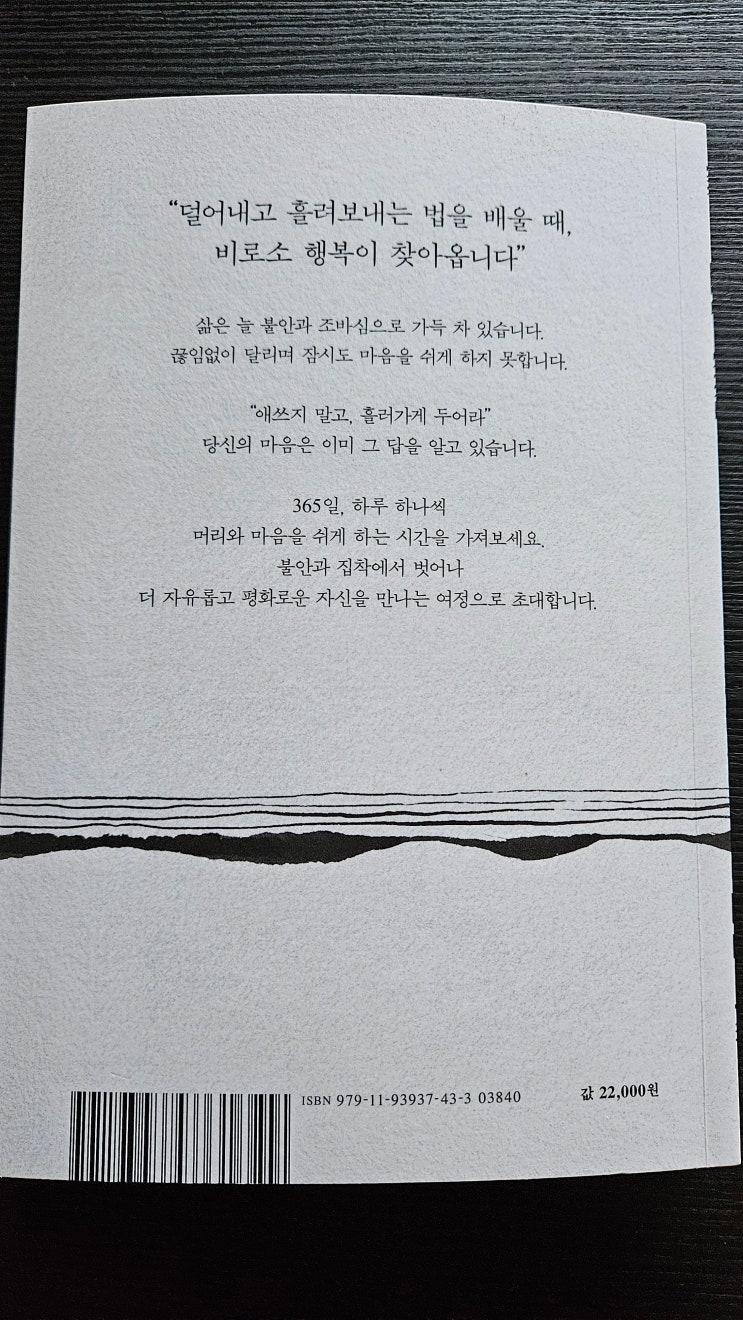 “덜어내고 흘려보내는 법을 배울 때,
비로소 행복이 찾아옵니다”
삶은 늘 불안과 조바심으로 가득 차 있습니다.
끊임없이 달리며 잠시도 마음을 쉬게 하지 못합니다.
“애쓰지 말고, 흘러가게 두어라”
당신의 마음은 이미 그 답을 알고 있습니다.
365일, 하루 하나씩
머리와 마음을 쉬게 하는 시간을 가져보세요.
불안과 집착에서 벗어나
더 자유롭고 평화로운 자신을 만나는 여정으로 초대합니다.
ISBN 979-11-93937-43-3 03840
값 22,000원